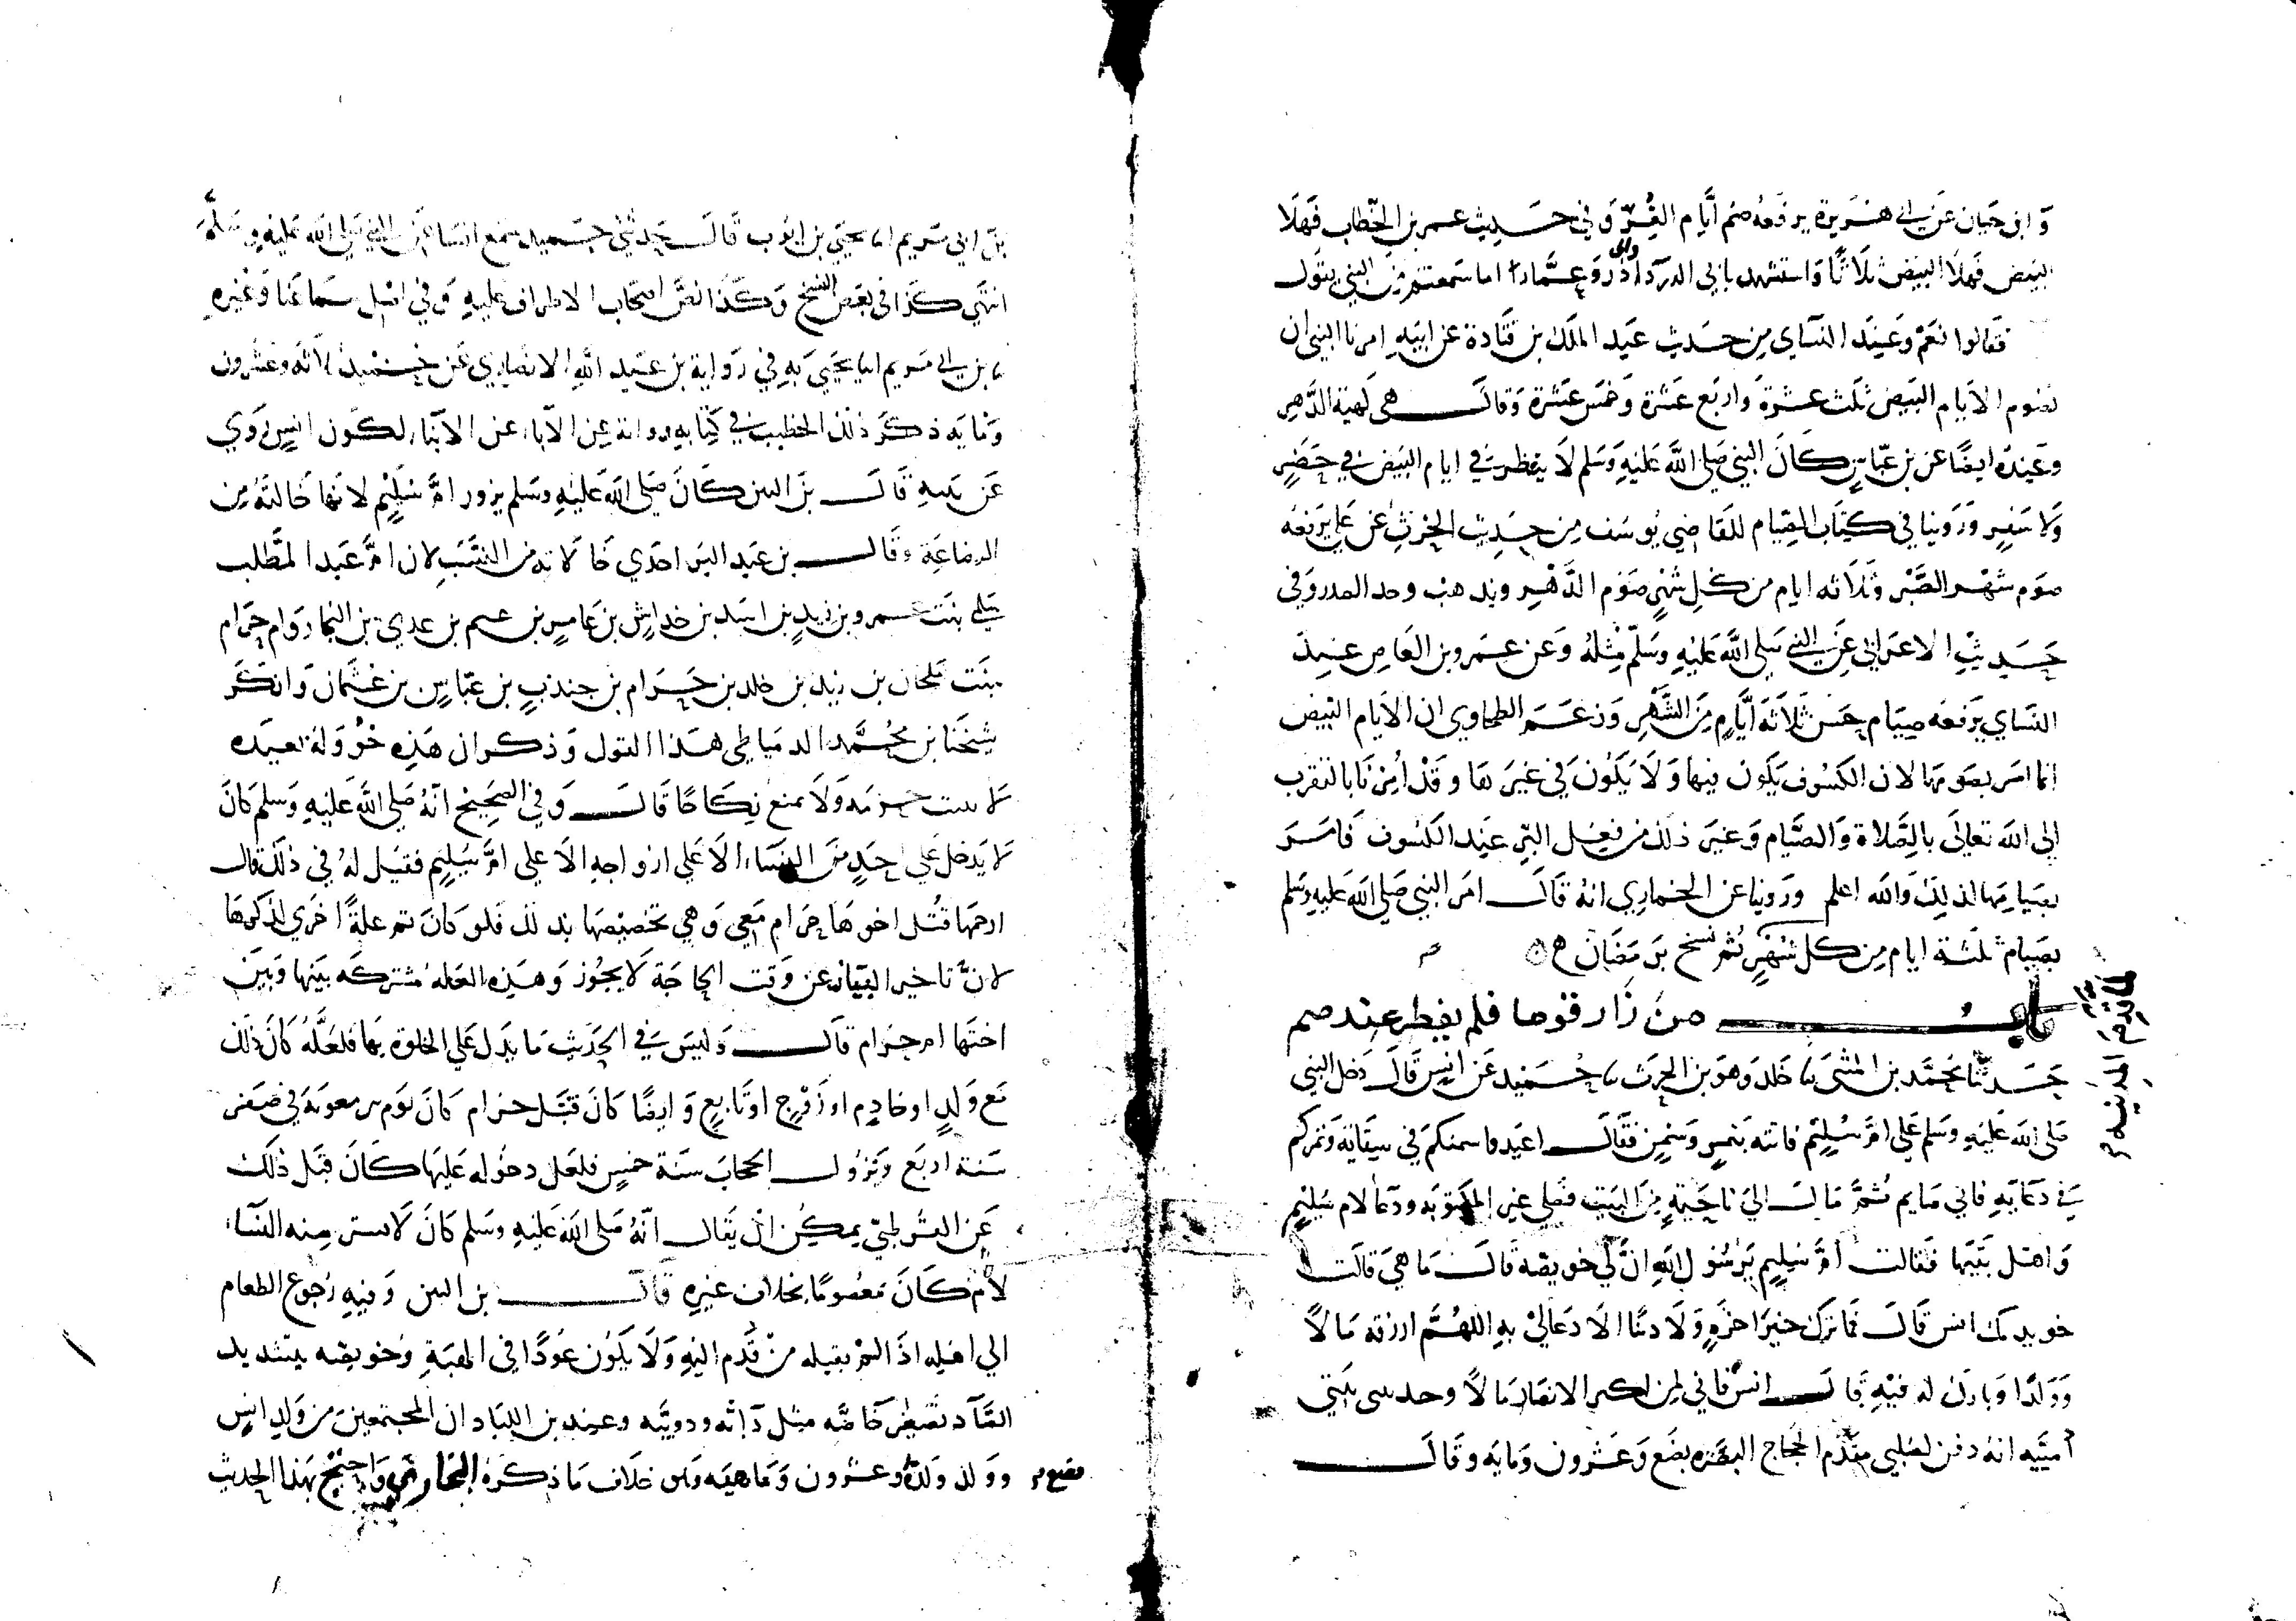 وابن حبان عن ابي هريرة يرفعه صم أيام الغر وفي حديث عمر بن الخطاب فهلا
البيض فهلا البيض ثلاثا واستشهد بابي الدرداء وابي ذر وعمارا اما سمعتم من النبي يقول
فقالوا نعم وعند النساي من حديث عبد الملك بن قتادة عن ابيه امرنا النبي ان
نصوم الايام البيض ثلث عشرة واربع عشرة وخمس عشرة وقال هي كهية الدهر
وعنده ايضا عن بن عباس كان النبي صلى الله عليه وسلم لا يفطر في ايام البيض في حضر
ولا سفر وروينا في كتاب الصيام للقاضي يوسف من حديث الحرث عن علي يرفعه
صوم شهر الصبر وثلاثه ايام من كل شهر صوم الدهر ويذهب وحر الصدر وفي
حديث الاعرابي عن النبي صلى الله عليه وسلم مثله وعن عمرو بن العاص عند
النساي يرفعه صيام حسن ثلاثة أيام من الشهر وزعم الطحاوي ان الايام البيض
انما امر بصومها لان الكسوف يكون فيها ولا يكون في غيرها وقد أمرنا بالتقرب
الى الله تعالى بالصلاة والصيام وغير ذلك من فعل البر عند الكسوف فامر
بصيامها لذلك والله اعلم وروينا عن البخاري انه قال امر النبي صلى الله عليه وسلم
بصيام ثلثة ايام من كل شهر ثم نسخ برمضان
باب من زار قوما فلم يفطر عندهم
حدثنا محمد بن المثنى خلد وهو بن الحرث حميد عن انس قال دخل النبي
صلى الله عليه وسلم على ام سليم فاتته بتمر وسمن فقال اعيدوا سمنكم في سقايه وتمركم
في وعايه فاني صايم ثم قال الى ناحية من البيت فصلى غير المكتوبه ودعا لام سليم
واهل بيتها فقالت أم سليم يرسول الله ان لي خويصه قال ما هي قالت
خويدمك انس قال فما ترك خير اخرة ولا دنيا الا دعا لي به اللهم ارزقه مالا
وولدا وبارك له فيه قال انس فاني لمن اكثر الانصار مالا وحدثتني بنتي
أمينه انه دفن لصلبي مقدم الحجاج البصره بضع وعشرون ومايه وقال
بن ابي مريم انا يحيى بن ايوب قال حدثني حميد سمع انسا عن النبي صلى الله عليه وسلم
انتهي كذا في بعض النسخ وكذا نص اصحاب الاطراف عليه وفي اصل سماعنا وغيره
بن ابي مريم انا يحيى به في رواية بن عبد الله الانصاري عن حميد ثلاثه وعشرون
ومايه ذكر ذلك الخطيب في كتابه رواية عن الآباء عن الابناء لكون انس روي
عن بنته قال بن التين كان صلى الله عليه وسلم يزور ام سليم لانها خالته من
الرضاعة وقال بن عبد البر احدي خالاته من النسب لان ام عبد المطلب
سلمي بنت عمرو بن زيد بن اسد بن خداش بن عامر بن غنم بن عدي بن النجار وام حرام
بنت ملحان بن زيد بن خلد بن حرام بن جندب بن عباس بن عثمان وانكر
شيخنا بن محمد الدمياطي هذا القول وذكر ان هذه خؤوله بعيده
لا تثبت حرمه ولا تمنع نكاحا قال وفي الصحيح انه صلى الله عليه وسلم كان
لا يدخل على احد من النساء الا على ازواجه الا على ام سليم فقيل له في ذلك قال
ارحمها قتل اخوها حرام معي وهي تخصيصها بذلك فلو كان ثم علة اخرى لذكرها
لان تاخير البيان عن وقت الحاجة لا يجوز وهذه العله مشتركه بينها وبين
اختها ام حرام قال وليس في الحديث ما يدل على الخلوة بها فلعله كان ذلك
مع ولد او خادم او زوج او تابع وايضا كان قتل حرام كان يوم بير معونة في صفر
سنة اربع ونزول الحجاب سنة خمس فلعل دخوله عليها كان قبل ذلك
عن القرطبي يمكن ان يقال انه صلى الله عليه وسلم كان لا تستتر منه النساء
لانه كان معصوما بخلاف غيره قال بن التين وفيه رجوع الطعام
الى اهله اذا لم يقبله من قدم اليه ولا يكون عودا في الهبة وخويصه بتشديد
الصاد تصغير خاصه مثل دابه ودويبه وعند بن اللباد ان المجتمعين من ولد انس
وولد ولده وعشرون وماهيه ومن خلاف ما ذكره البخاري واحتج بهذا الحديث